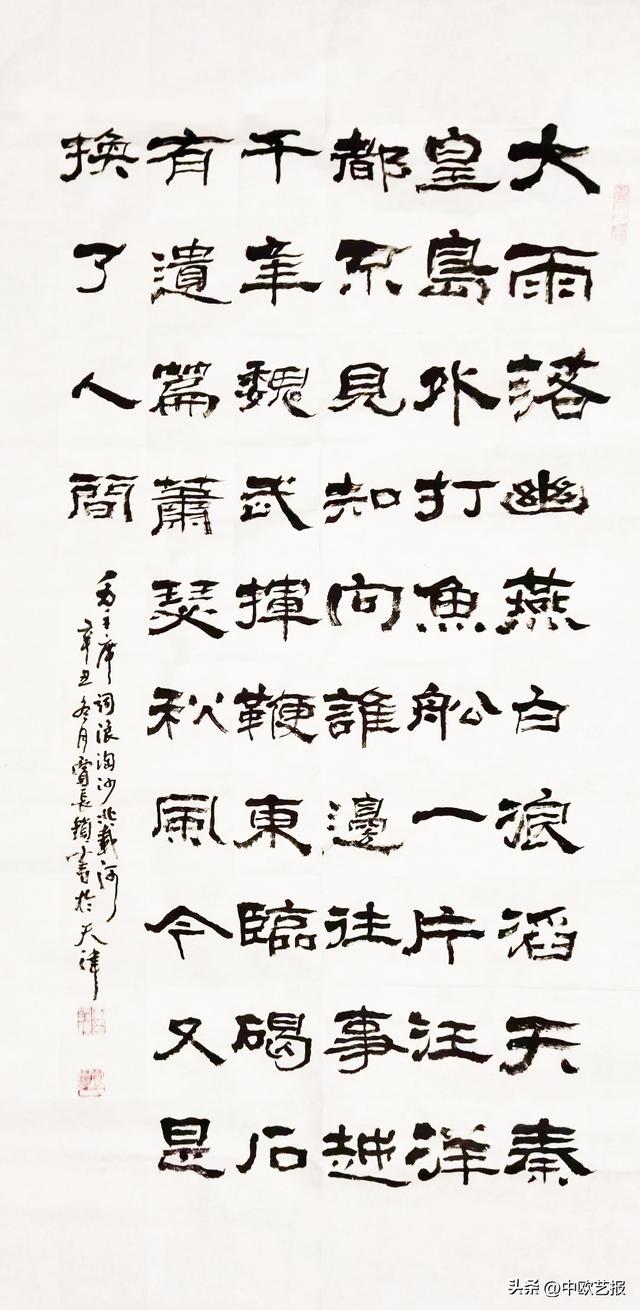 大雨落幽燕白浪滔天秦
皇島外打魚舩一片汪洋
都不見知向誰邊往事越
千年魏武揮鞭東臨碣石
有遺篇蕭瑟秋風今又是
換了人間
毛主席词浪淘沙北戴河
辛丑冬月賈長鎖書於天津
头条 @中欧艺报